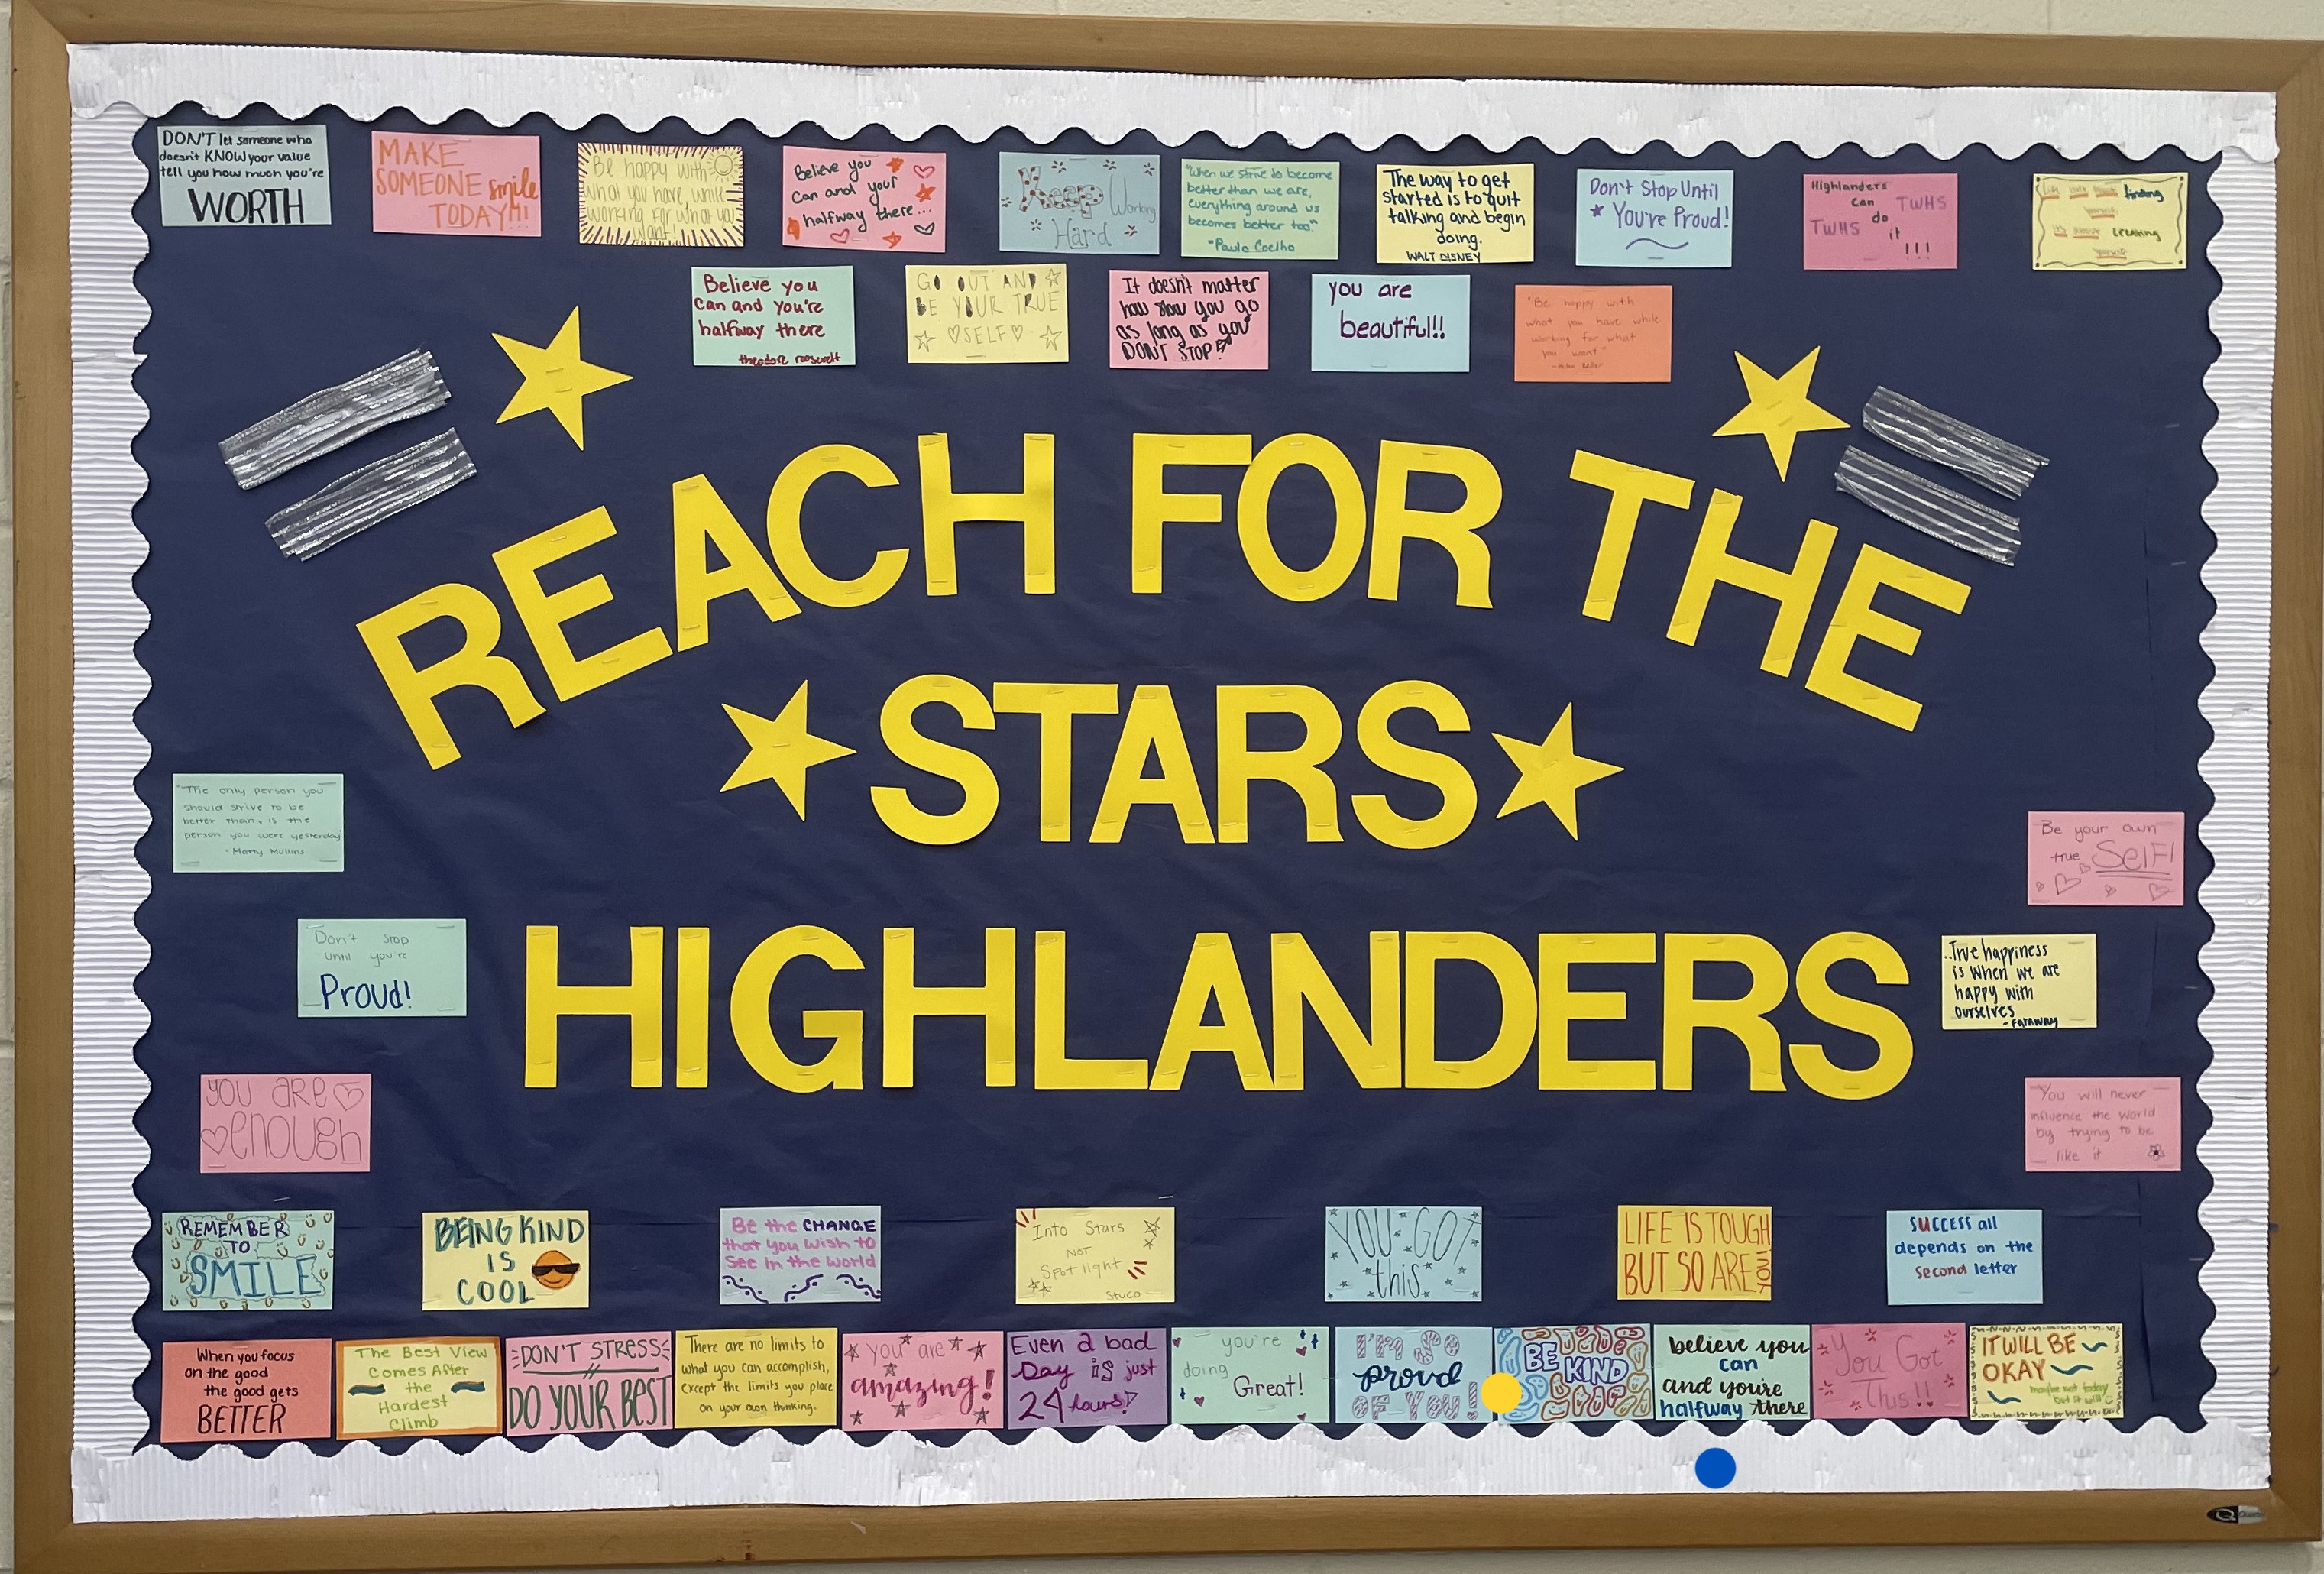 DON'T let someone who
doesn't KNOW your value
tell you how much you're
WORTH
MAKE
SOMEONE smile
TODAY!!!
Be happy with
what you have, while
working for what you
want!
Believe you
can and your
halfway there...
Keep Working
Hard
"When we strive to become
better than we are,
everything around us
becomes better too."
-Paulo Coelho
The way to get
started is to quit
talking and begin
doing.
WALT DISNEY
Don't Stop Until
You're Proud!
Highlanders
can
do
it
!!!
TWHS
TWHS
Life isn't about finding
yourself
its about creating
yourself
Believe you
can and you're
halfway there
theodore roosevelt
GO OUT AND
BE YOUR TRUE
SELF
It doesn't matter
how slow you go
as long as you
DON'T STOP!
you are
beautiful!!
"Be happy with
what you have while
working for what
you want"
-Helen Keller
REACH FOR THE
STARS
HIGHLANDERS
"The only person you
should strive to be
better than, is the
person you were yesterday"
- Matty Mullins
Be your own
true SelF!
Don't stop
until you're
Proud!
..True happiness
is when we are
happy with
ourselves
-faraway
you are
enough
You will never
influence the world
by trying to be
like it
REMEMBER
TO
SMILE
BEING KIND
IS
COOL
Be the CHANGE
that you wish to
See in the world
Into Stars
NOT
Spotlight
Stuco
YOU GOT
this
LIFE IS TOUGH
BUT SO ARE YOU
SUCCESS all
depends on the
second letter
When you focus
on the good
the good gets
BETTER
The Best View
Comes After
the
Hardest
Climb
DON'T STRESS
DO YOUR BEST
There are no limits to
what you can accomplish,
except the limits you place
on your own thinking.
you are
amazing!
Even a bad
Day is just
24 hours!
you're
doing
Great!
I'M SO
proud
OF YOU!
BE KIND
believe you
can
and you're
halfway there
You Got
this!!
IT WILL BE
OKAY
maybe not today
but it will